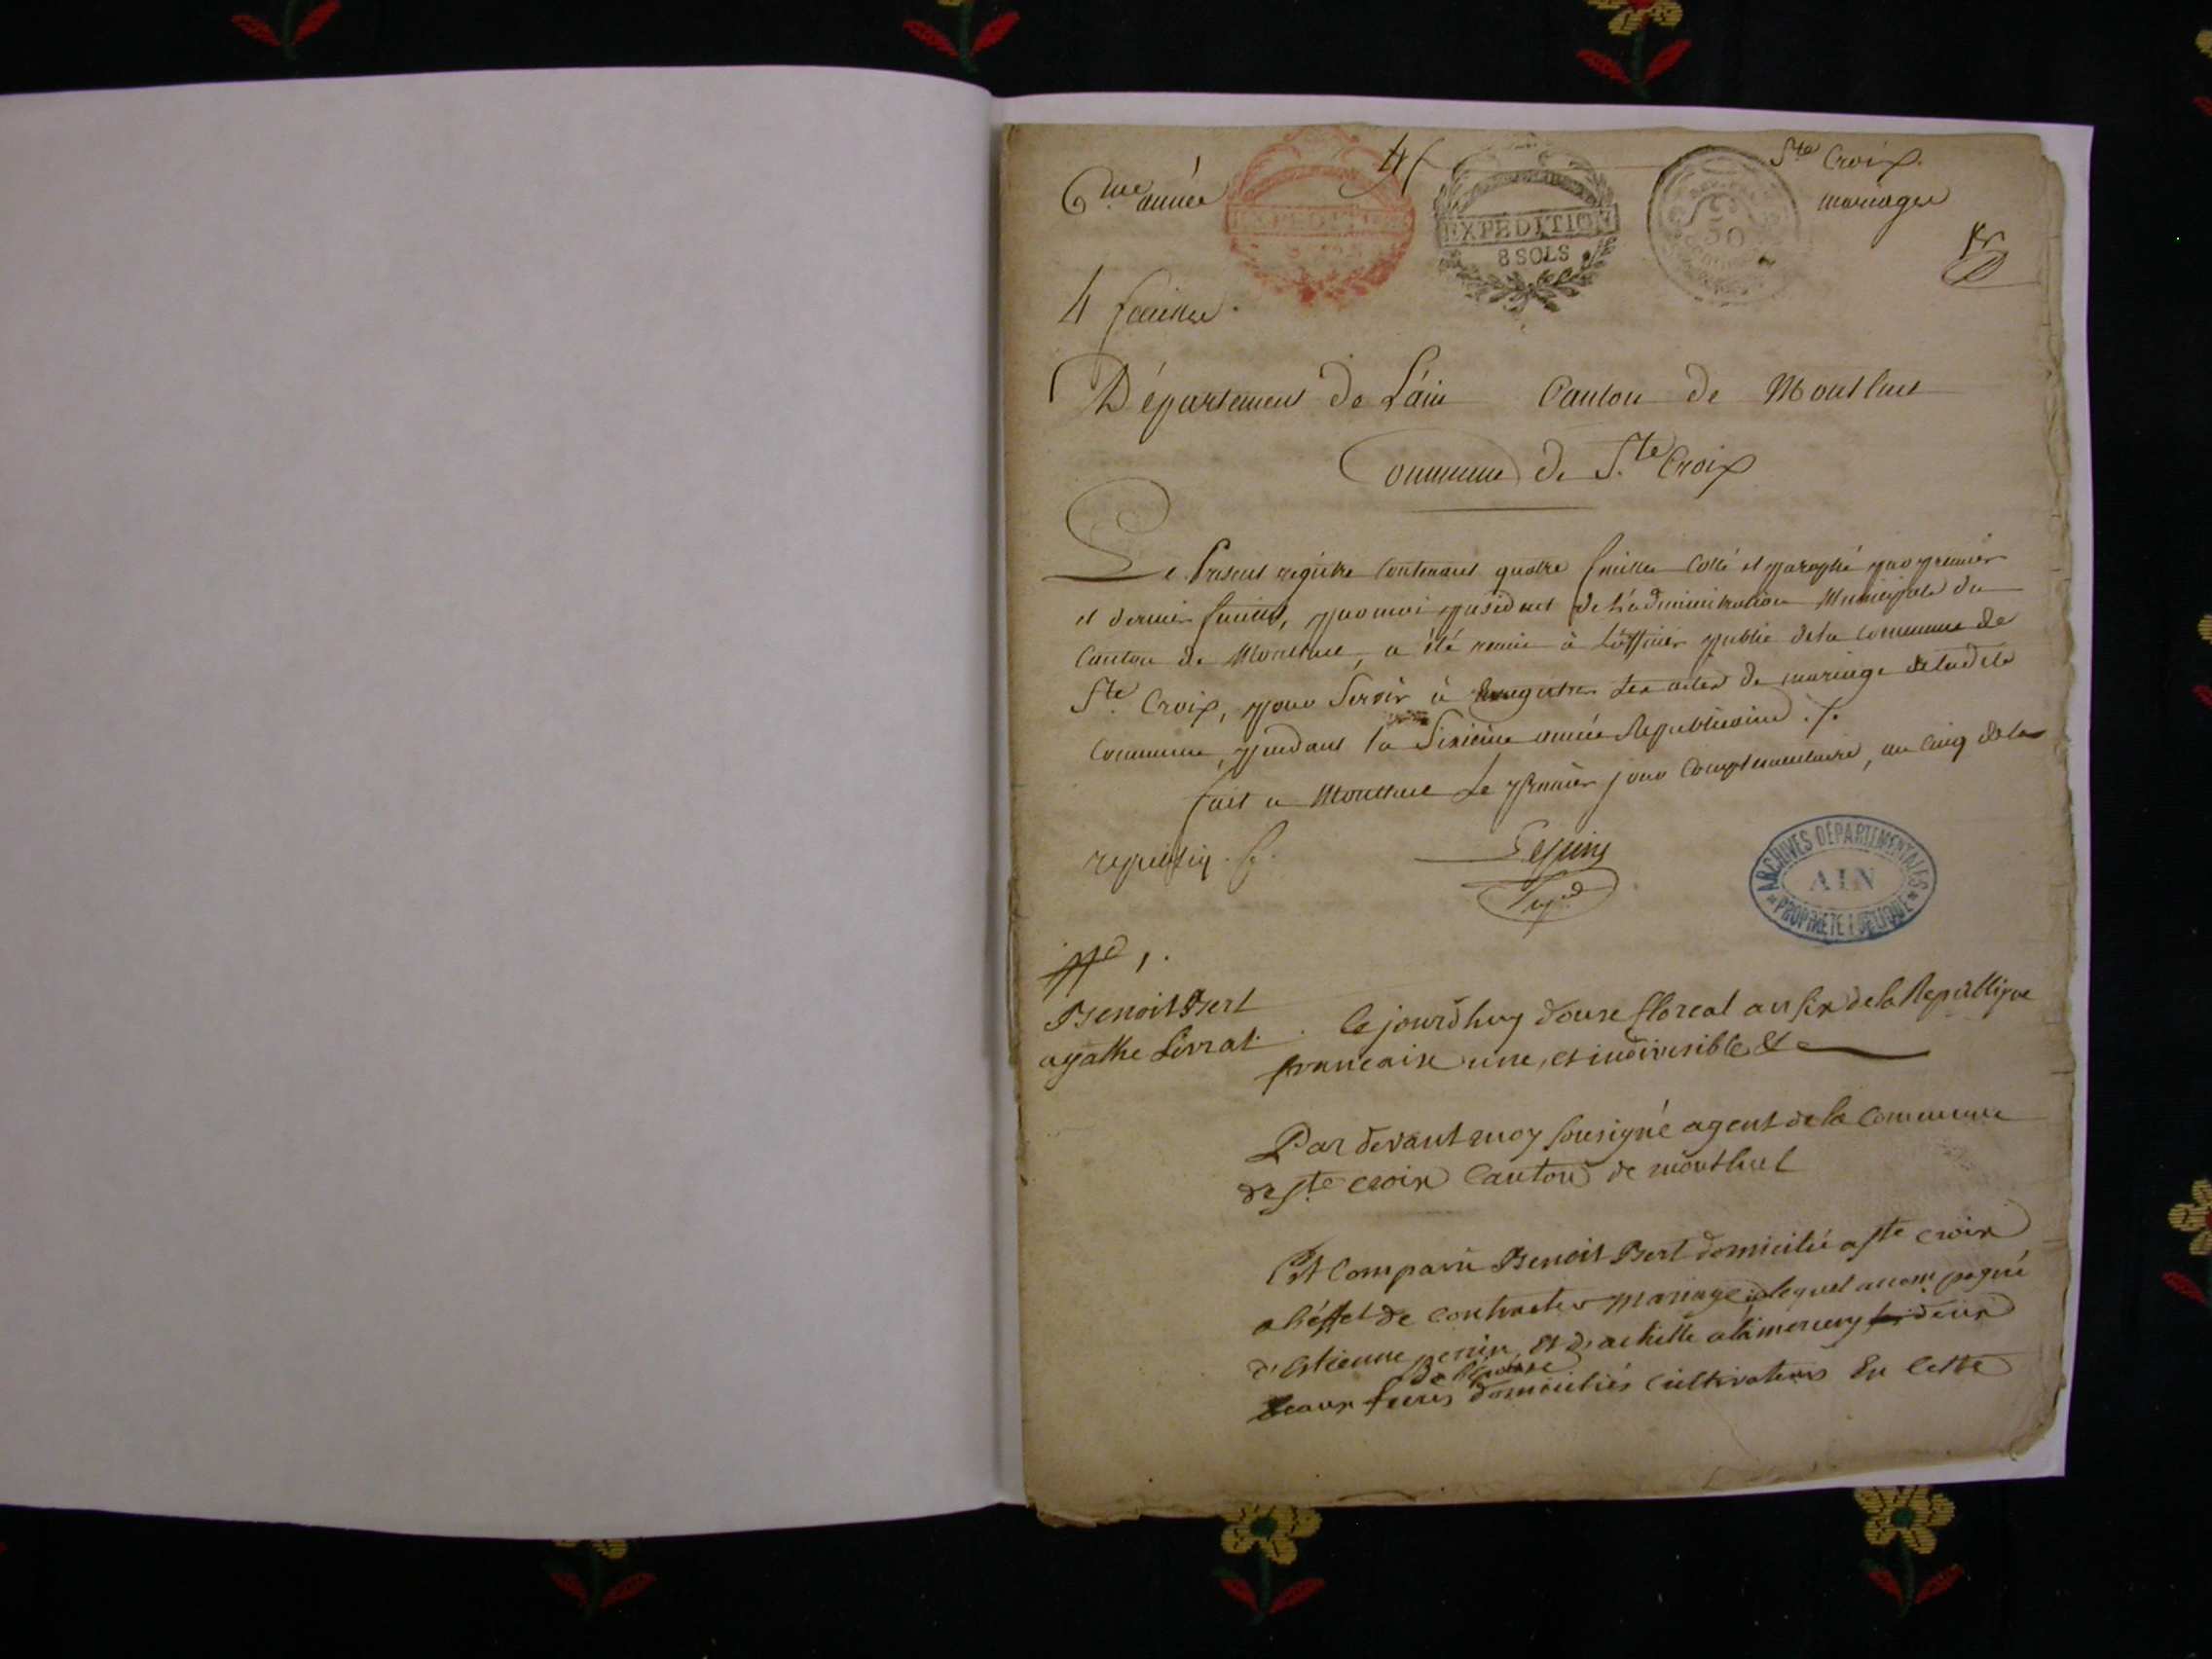 Ste Croix.
6me année
mariages
EXPÉDITION
8 SOLS
50
4 feuilles.
Département de L'ain Canton de Montluel
Commune de Ste Croix
Le Present registre contenant quatre feuilles cotté et paraphé par premier
et dernier feuillet, par moi président de L'administration Municipale du
Canton de Montluel, a été remis à L'officier public de la commune de
Ste Croix, pour Servir à Enregistrer Les actes de mariage de ladite
Commune, pendant la Sixieme année Republicaine ./.
fait a Montluel Le premier jour Complementaire, an Cinq de la
republiq.
Benoit Bert
agathe Livrat
Ce jourdhuy douse floreal an six de la Republique
francaise une, et indivisible &
Par devant moy sousigné agent de la Commune
de ste croix Canton de montluel
Est Comparu Benoit Bert domicilié a ste croix
a l'éffet de contracter mariage lequel accompagné
d'Estienne perin, et d'achille alamercery deux
De l'épouse
beaux freres domiciliés cultivateurs En cette
ARCHIVES DÉPARTEMENTALES
AIN
PROPRIÉTÉ PUBLIQUE